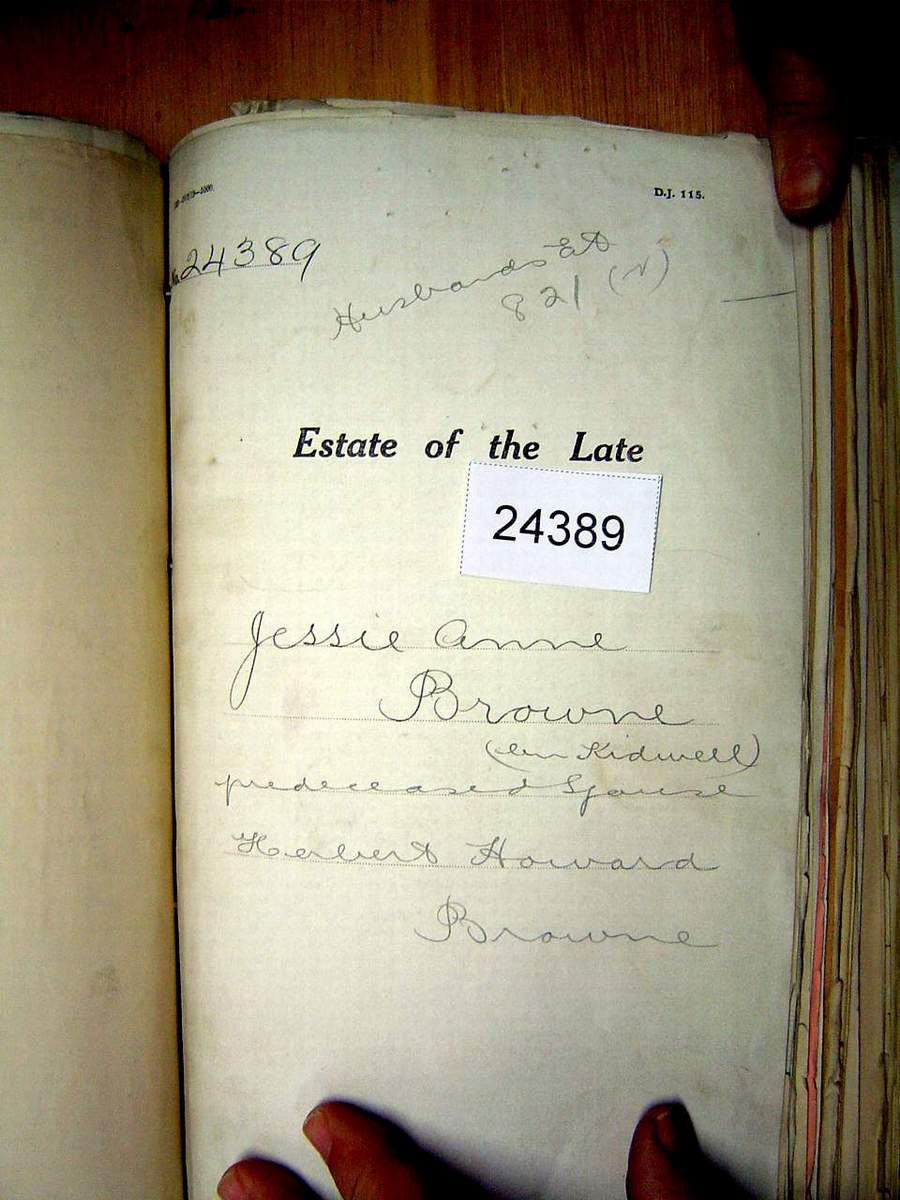 D.J. 115.
No. 24389
Husbands Est
821 (N)
Estate of the Late
24389
Jessie Anne
Browne
(born Kidwell)
predeceased Spouse
Herbert Howard
Browne